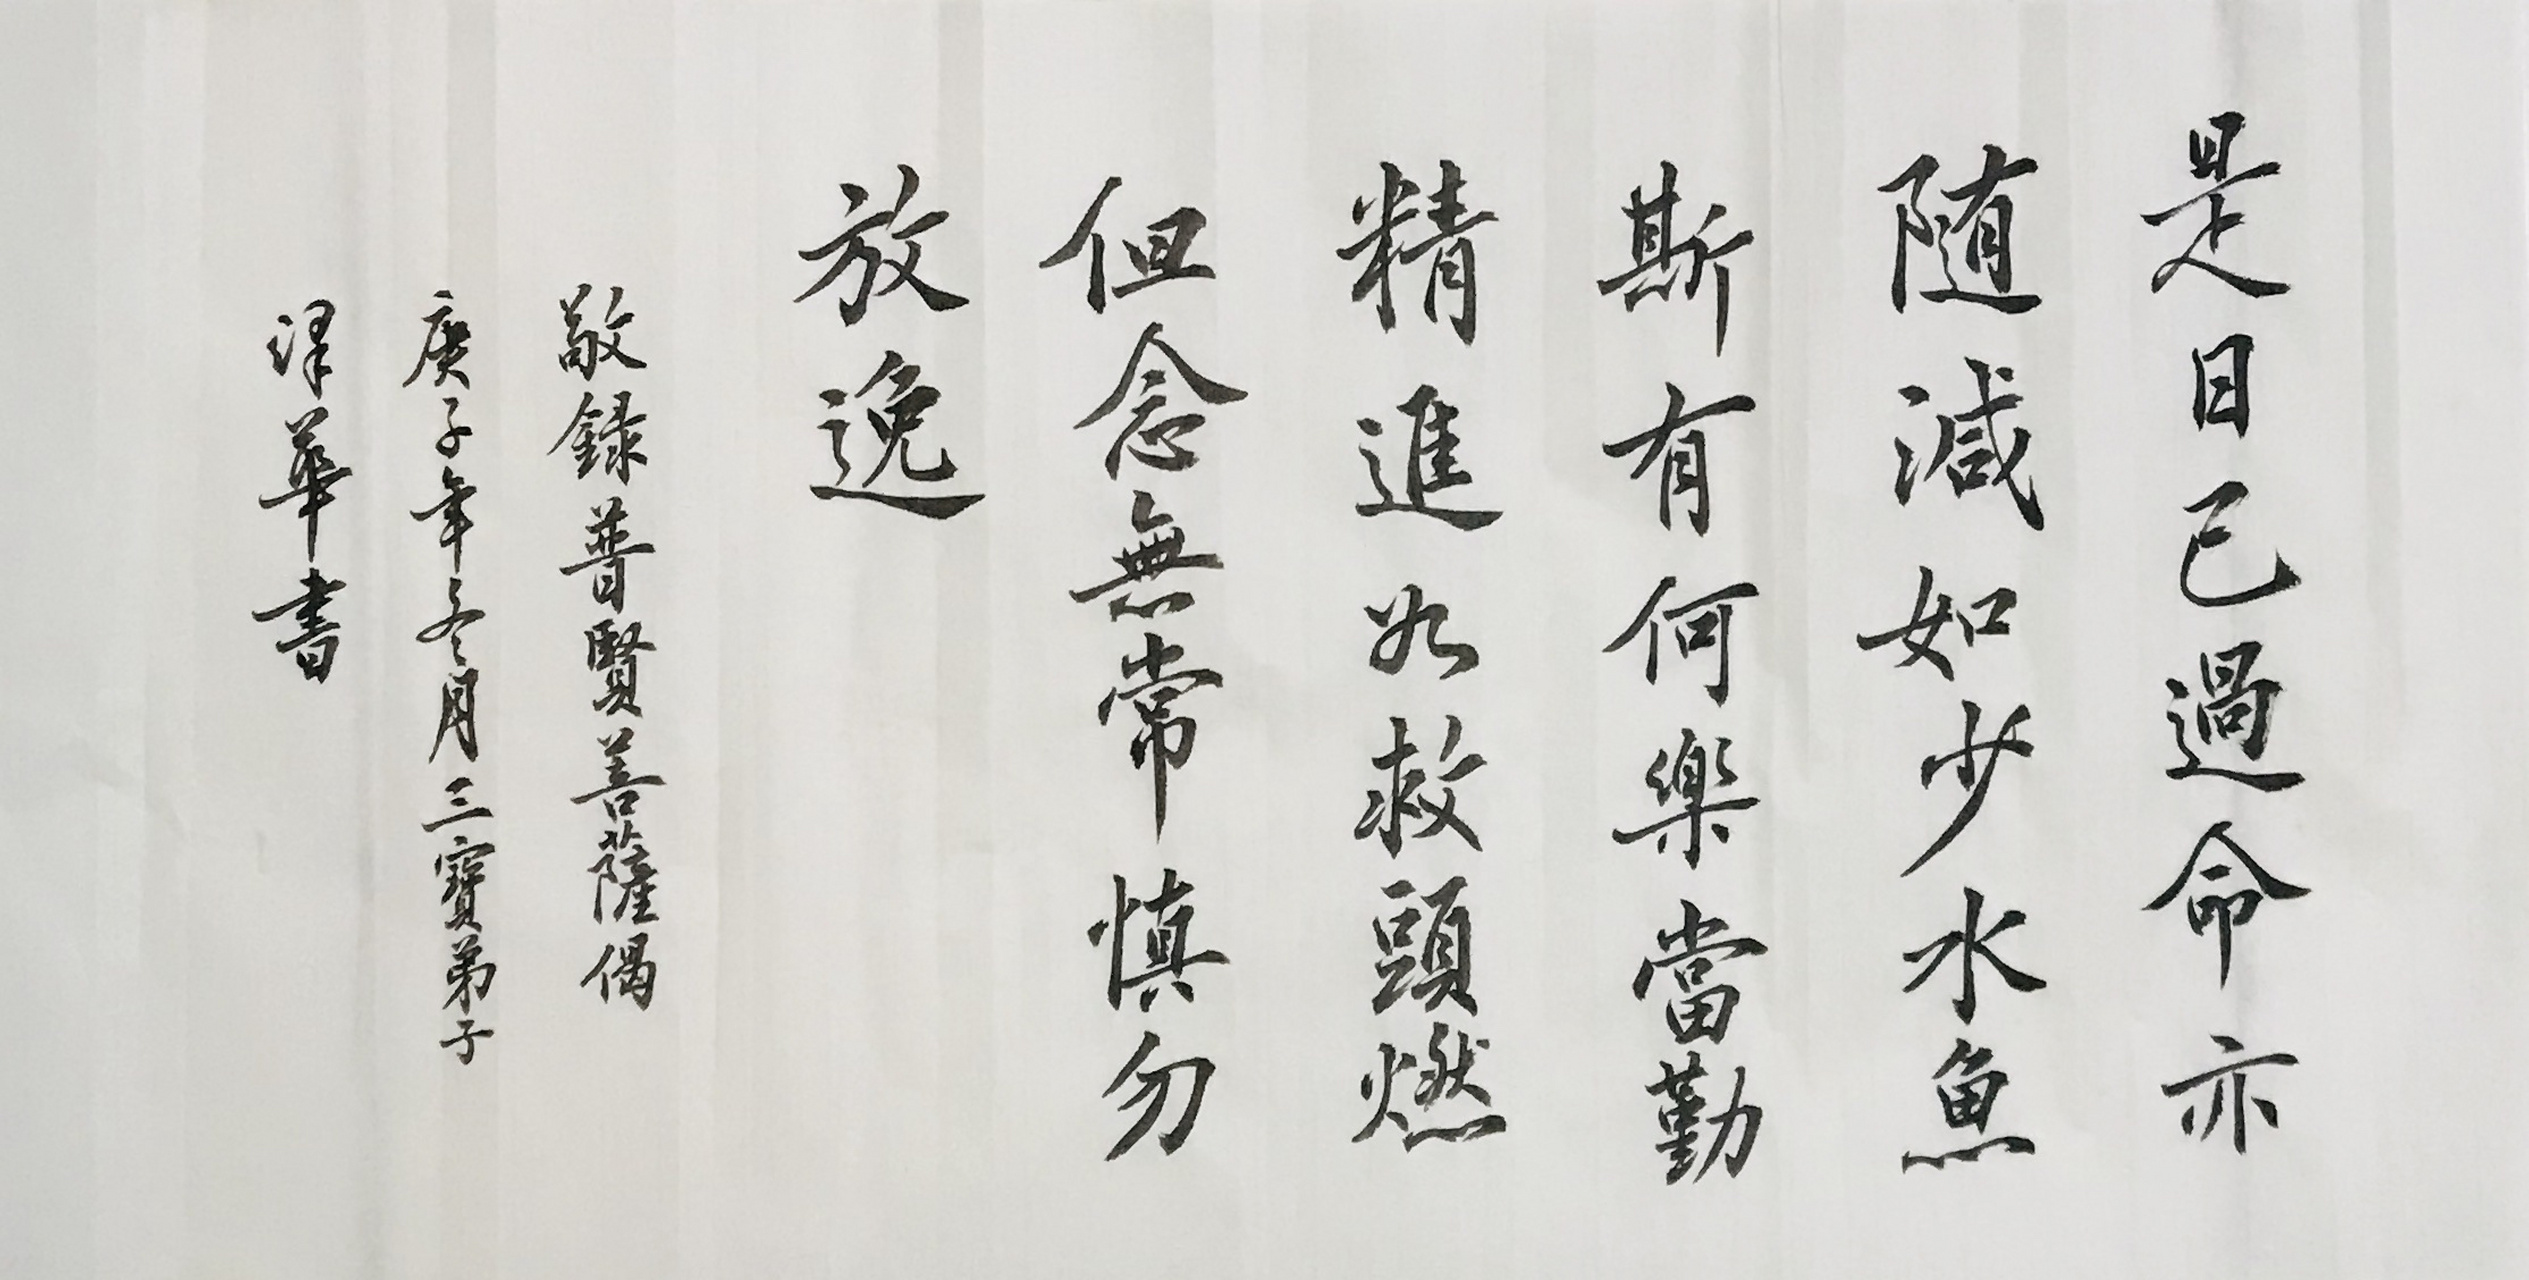 是日已過命亦
随減如少水魚
斯有何樂當勤
精進如救頭燃
但念無常慎勿
放逸
敬録普賢菩薩偈
庚子年冬月三寶弟子
澤華書